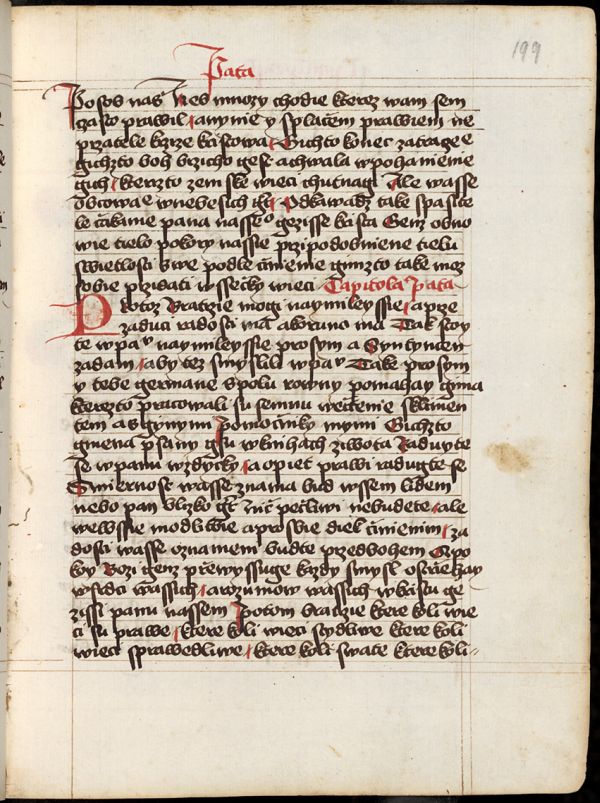 199
Pata
Po sob nas Nes mnozy chodie kterez wam sem
czasto prawil a nynie y s placzem prawiem ne
przatele krzize kristowa Gichto konec zatrace
gichzto boh brzicho gest a chwala w pohanienie
gich kterzto zemske wieci chutnagi Ale wasse
obcowa e w nebesich Odkawadz take spasite
le czakame pana nasseo gezisse krista Genz obno
wie tielo pokory nassie przipodobniene tielu
swietlosti swe podle cinienie gimzto take moz
sobie przidati wssecky wieci Capitola Pata
Protoz bratrzie mogi naymileyssie a prze
zaduci radosti ma a koruno ma Tak stoy
te w pau naymileyssie prosym a Syntycen
zadam aby tez smyslili w pau Take prosym
y tebe germane spolu rowny pomahay gima
kterezto pracowali su semnu wecztenie s klimen
tem a s gynymi pomocniky mymi Gichzto
gmena psany gsu w knihach ziwota Raduyte
se w panu wzdycky a opiet prawi radugte se
Smiernost wasse znama bud wssem lidem
nebo pan blizko gt niczs pecliwi nebudete ale
we wssie modlitwie a prosbie diek cinienim za
dosti wasse oznameni budte przed bohem A po
koy Bozi genz przewyssuge kazdy smysl ostrzehay
w srdci wassich a rozumow wassich w kristu ge
zissi panu nassem Potom bratrzie ktere koli wie
ci su prawe ktere koli wieci stydliwe ktere koli
wieci sprawedliwe ktere koli swate ktere koli